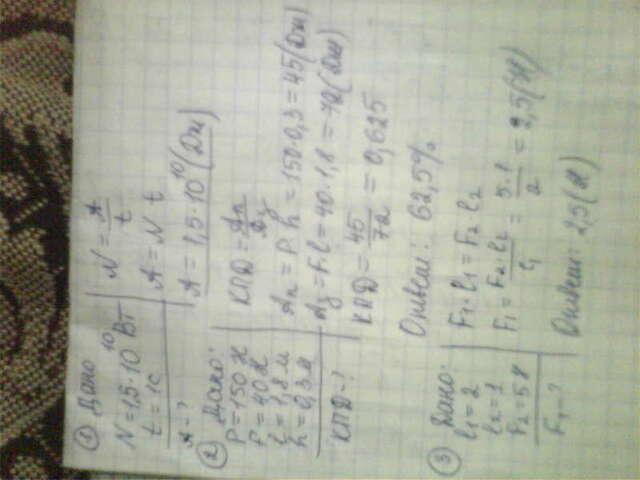 ① Дано
N=1,5·10¹⁰Вт
t=1с
A-?
N=A/t
A=N t
A=1,5·10¹⁰(Дж)
② Дано:
P=150 Н
F=40 Н
l=1,8 м
h=0,3м
КПД-?
КПД=Aп/Aз
Aп=P h=150·0,3=45(Дж)
Aз=Fl=40·1,8=72(Дж)
КПД=45/72=0,625
Ответ: 62,5%
③ Дано:
l₁=2
l₂=1
F₂=5Н
F₁-?
F₁·l₁=F₂ l₂
F₁=F₂·l₂/l₁=5·1/2=2,5(Н)
Ответ: 2,5(Н)